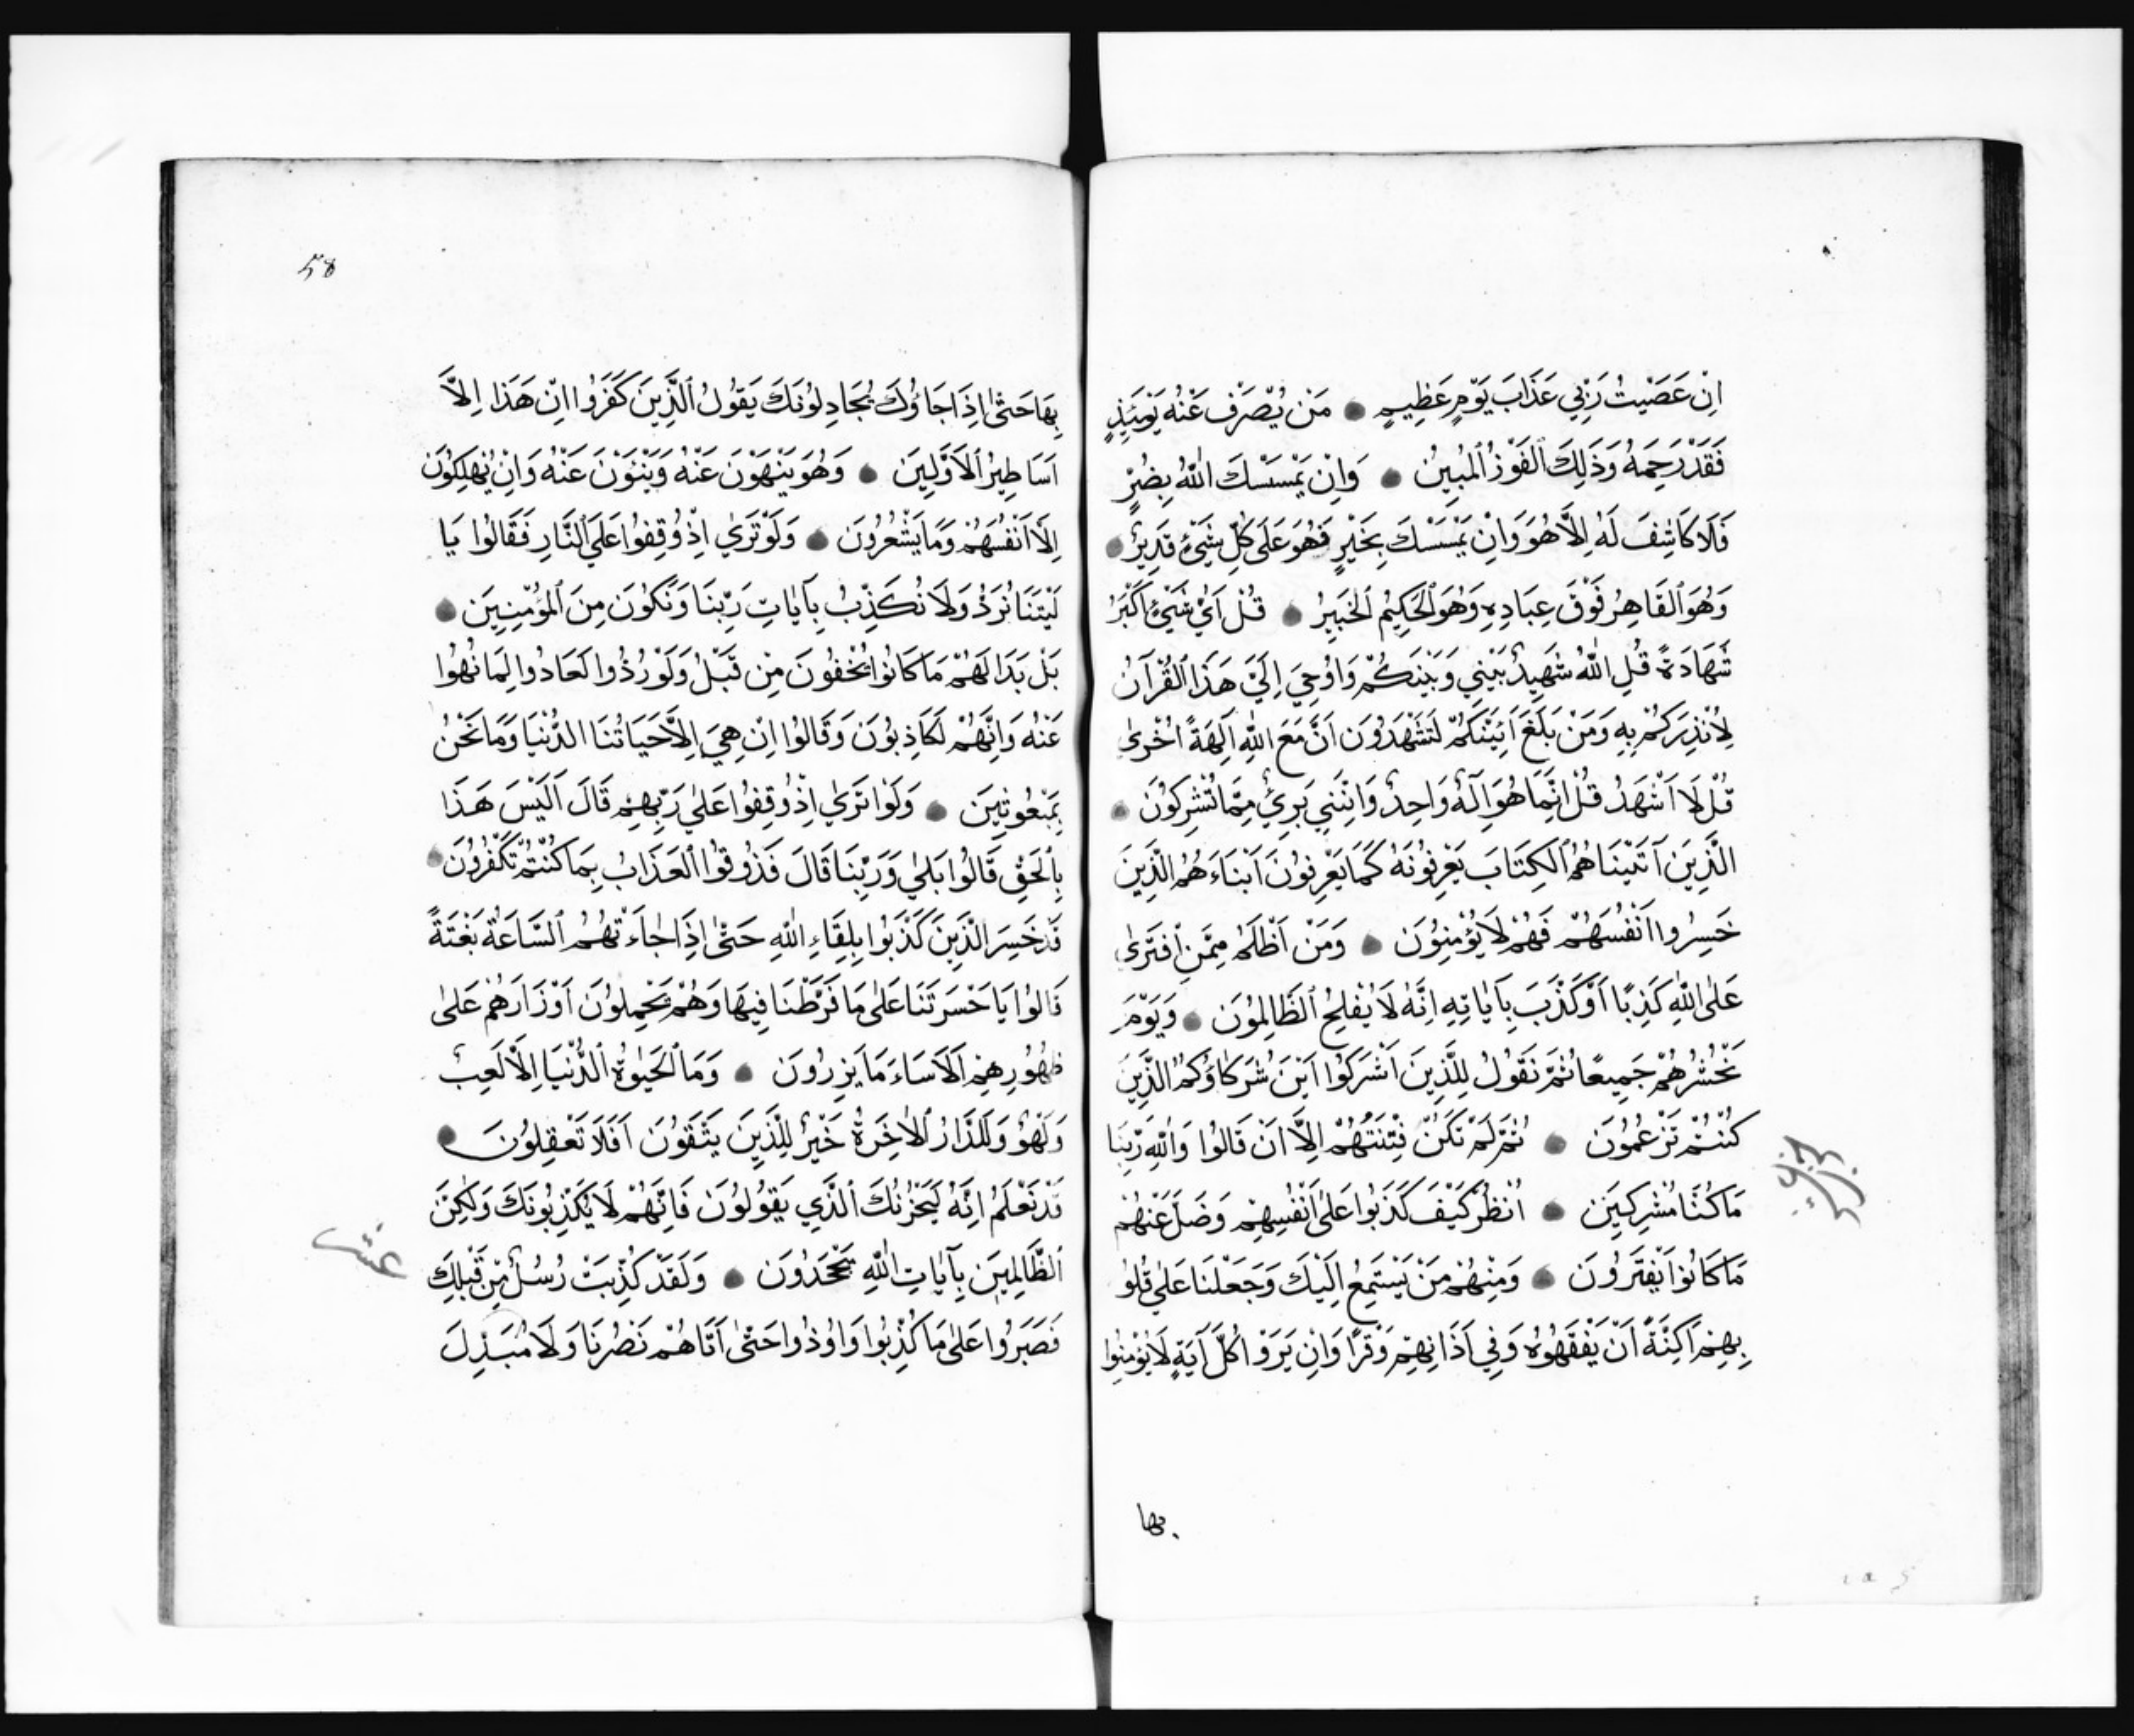 اِنْ عَصَيْتُ رَبِّي عَذَابَ يَوْمٍ عَظِيمٍ ● مَنْ يُصْرَفْ عَنْهُ يَوْمَئِذٍ
فَقَدْ رَحِمَهُ وَذَلِكَ ٱلْفَوْزُ ٱلْمُبِينُ ● وَاِنْ يَمْسَسْكَ اللّٰهُ بِضُرٍّ
فَلَا كَاشِفَ لَهُ اِلَّا هُوَ وَاِنْ يَمْسَسْكَ بِخَيْرٍ فَهُوَ عَلَى كُلِّ شَيْئٍ قَدِيرٌ ●
وَهُوَ ٱلْقَاهِرُ فَوْقَ عِبَادِهِ وَهُوَ ٱلْحَكِيمُ ٱلْخَبِيرُ ● قُلْ اَيُّ شَيْئٍ اَكْبَرُ
شَهَادَةً قُلِ اللّٰهُ شَهِيدٌ بَيْنِي وَبَيْنَكُمْ وَاُوحِيَ اِلَيَّ هَذَا ٱلْقُرْآنُ
لِاُنْذِرَكُمْ بِهِ وَمَنْ بَلَغَ اَئِنَّكُمْ لَتَشْهَدُونَ اَنَّ مَعَ اللّٰهِ آلِهَةً اُخْرىٰ
قُلْ لَا اَشْهَدُ قُلْ اِنَّمَا هُوَ اِلَهٌ وَاحِدٌ وَاِنَّنِي بَرِئٌ مِمَّا تُشْرِكُونَ ●
الَّذِينَ آتَيْنَاهُمُ ٱلْكِتَابَ يَعْرِفُونَهُ كَمَا يَعْرِفُونَ اَبْنَاءَهُمُ الَّذِينَ
خَسِرُوا اَنْفُسَهُمْ فَهُمْ لَا يُؤْمِنُونَ ● وَمَنْ اَظْلَمُ مِمَّنِ ٱفْتَرىٰ
عَلىٰ اللّٰهِ كَذِبًا اَوْ كَذَّبَ بِآيَاتِهِ اِنَّهُ لَا يُفْلِحُ ٱلظَّالِمُونَ ● وَيَوْمَ
نَحْشُرُهُمْ جَمِيعًا ثُمَّ نَقُولُ لِلَّذِينَ اَشْرَكُوا اَيْنَ شُرَكَاؤُكُمُ الَّذِينَ
كُنْتُمْ تَزْعُمُونَ ● ثُمَّ لَمْ تَكُنْ فِتْنَتُهُمْ اِلَّا اَنْ قَالُوا وَاللّٰهِ رَبِّنَا
مَا كُنَّا مُشْرِكِينَ ● اُنْظُرْ كَيْفَ كَذَبُوا عَلىٰ اَنْفُسِهِمْ وَضَلَّ عَنْهُمْ
مَا كَانُوا يَفْتَرُونَ ● وَمِنْهُمْ مَنْ يَسْتَمِعُ اِلَيْكَ وَجَعَلْنَا عَلىٰ قُلُو
بِهِمْ اَكِنَّةً اَنْ يَفْقَهُوهُ وَفِي آذَانِهِمْ وَقْرًا وَاِنْ يَرَوْا كُلَّ آيَةٍ لَا يُؤْمِنُوا
بها
58
بِهَا حَتّٰى اِذَا جَاؤُكَ يُجَادِلُونَكَ يَقُولُ ٱلَّذِينَ كَفَرُوا اِنْ هَذَا اِلَّا
اَسَاطِيرُ ٱلْاَوَّلِينَ ● وَهُوَ يَنْهَوْنَ عَنْهُ وَيَنْئَوْنَ عَنْهُ وَاِنْ يُهْلِكُونَ
اِلَّا اَنْفُسَهُمْ وَمَا يَشْعُرُونَ ● وَلَوْ تَرَي اِذْ وُقِفُوا عَلَى ٱلنَّارِ فَقَالُوا يَا
لَيْتَنَا نُرَدُّ وَلَا نُكَذِّبُ بِآيَاتِ رَبِّنَا وَنَكُونَ مِنَ ٱلْمُؤْمِنِينَ ●
بَلْ بَدَا لَهُمْ مَا كَانُوا يُخْفُونَ مِنْ قَبْلُ وَلَوْ رُدُّوا لَعَادُوا لِمَا نُهُوا
عَنْهُ وَاِنَّهُمْ لَكَاذِبُونَ وَقَالُوا اِنْ هِيَ اِلَّا حَيَاتُنَا الدُّنْيَا وَمَا نَحْنُ
بِمَبْعُوثِينَ ● وَلَوْا تَرىٰ اِذْ وُقِفُوا عَلىٰ رَبِّهِمْ قَالَ اَلَيْسَ هَذَا
بِٱلْحَقِّ قَالُوا بَلىٰ وَرَبِّنَا قَالَ فَذُوقُوا ٱلْعَذَابَ بِمَا كُنْتُمْ تَكْفُرُونَ ●
قَدْ خَسِرَ الَّذِينَ كَذَّبُوا بِلِقَاءِ اللّٰهِ حَتّٰى اِذَا جَاءَتْهُمُ ٱلسَّاعَةُ بَغْتَةً
قَالُوا يَا حَسْرَتَنَا عَلىٰ مَا فَرَّطْنَا فِيهَا وَهُمْ يَحْمِلُونَ اَوْزَارَهُمْ عَلىٰ
ظُهُورِهِمْ اَلَا سَاءَ مَا يَزِرُونَ ● وَمَا ٱلْحَيٰوةُ ٱلدُّنْيَا اِلَّا لَعِبٌ
وَلَهْوٌ وَلَلدَّارُ ٱلْاٰخِرَةُ خَيْرٌ لِلَّذِينَ يَتَّقُونَ اَفَلَا تَعْقِلُونَ ●
قَدْ نَعْلَمُ اِنَّهُ لَيَحْزُنُكَ ٱلَّذِي يَقُولُونَ فَاِنَّهُمْ لَا يُكَذِّبُونَكَ وَلٰكِنَّ
عشر
ٱلظَّالِمِينَ بِآيَاتِ اللّٰهِ يَجْحَدُونَ ● وَلَقَدْ كُذِّبَتْ رُسُلٌ مِنْ قَبْلِكَ
فَصَبَرُوا عَلىٰ مَا كُذِّبُوا وَاُوذُوا حَتّٰى اَتَاهُمْ نَصْرُنَا وَلَا مُبَدِّلَ